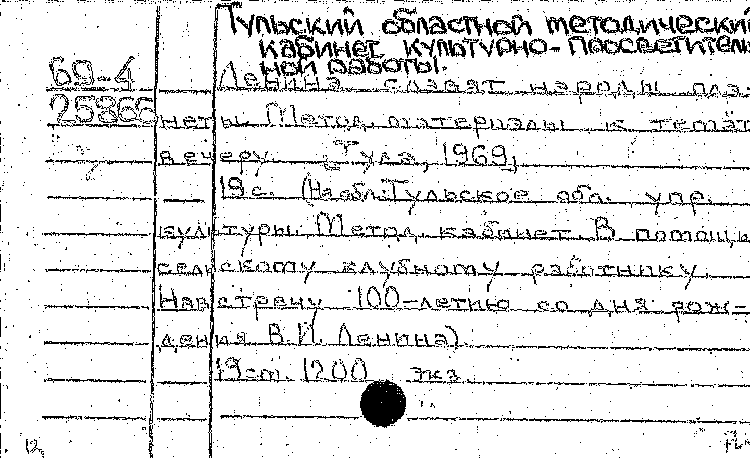 Тульский областной методический
кабинет культурно-просветитель
ной работы.
69-4
Ленина славят народы пла-
25866
неты. Метод. материалы к темат
вечеру. [Тула, 1969]
19 с. (На обл.: Тульское обл. упр.
культуры. Метод. кабинет. В помощь
сельскому клубному работнику.
Навстречу 100-летию со дня рож-
дения В.И. Ленина)
19 см. 1200 экз.
12